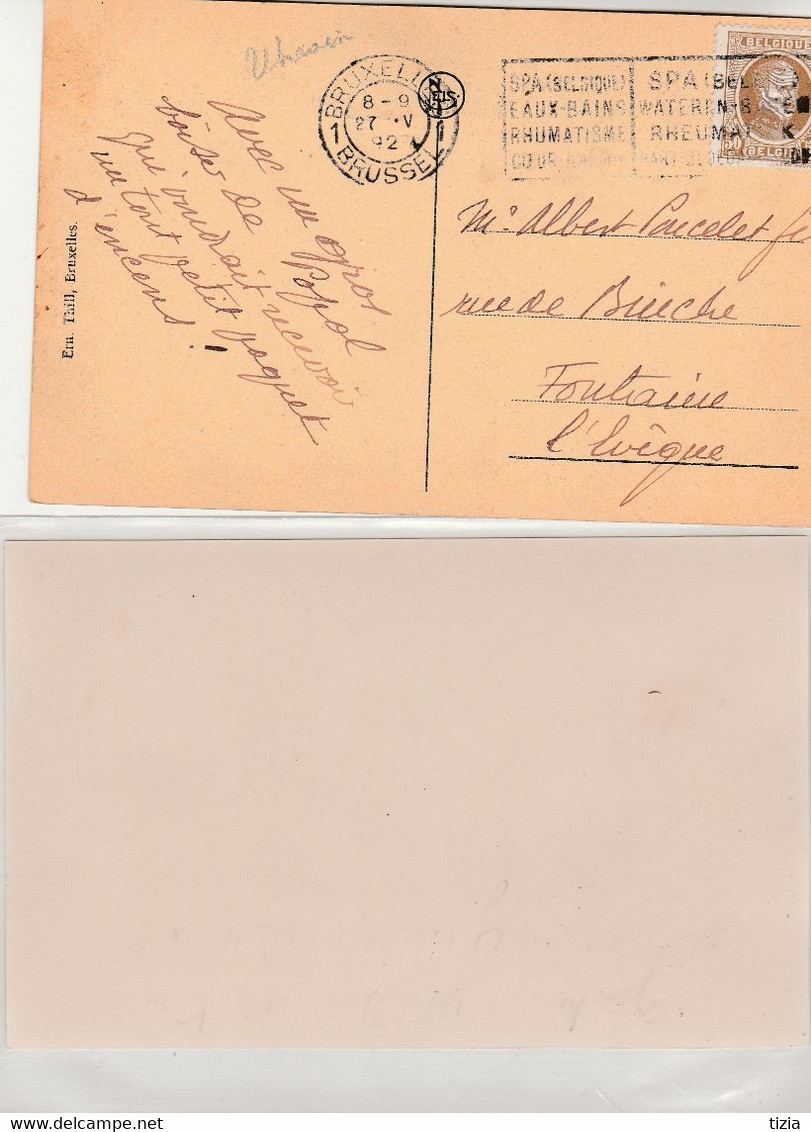 BRUXELL
8-9
27 V
192
1 1
BRUSSEL
ELS
SPA (BELGIQUE)
EAUX-BAINS
RHUMATISME
CŒUR
SPA (BEL
WATEREN-BA
RHEUMAT K
BELGIQUE
50
BELGI
Avec un gros
baiser de Popol
qui voudrait recevoir
un tout petit paquet
d'encens !
Em. Thill, Bruxelles.
Mr Albert Poucelet
rue de Binche
Fontaine
l'Evêque
delcampe.net
tizia